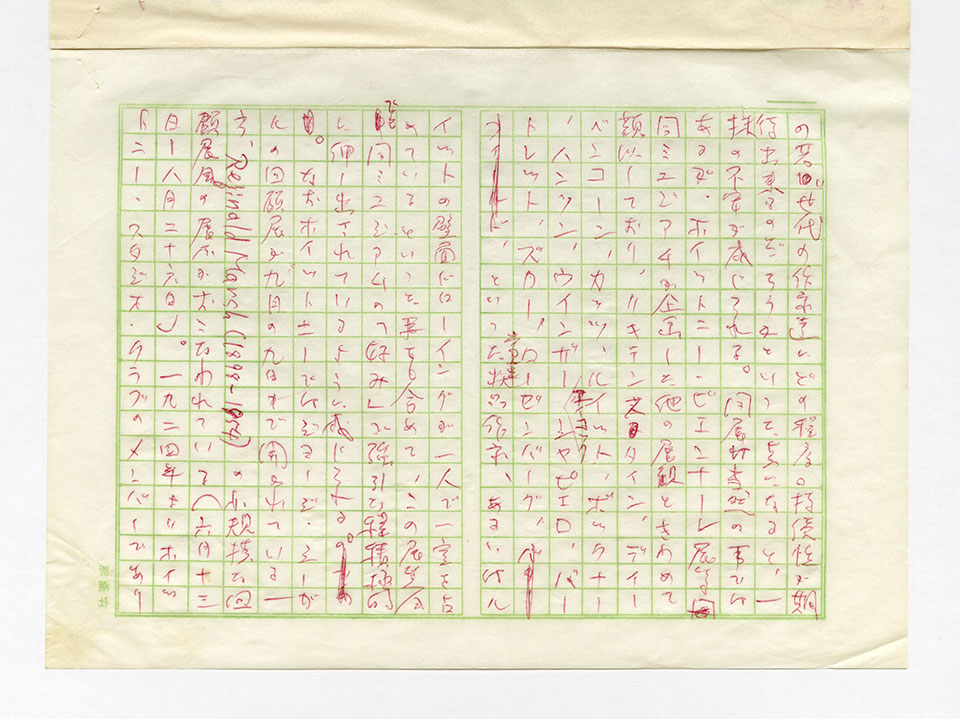 の若い世代の作家達にどの程度の持続性が期
待出来るのだろうかということになると、一
抹の不安が感じられる。同展は当然の事では
あるが、ホイットニー・ビエンナーレ展等
同ミュージアムが企画した他の展観ときわめて
類似しており、リキテンスタイン、ディー
ベンコーン、カッツ、ルイット、ボックナー
、ハンソン、ウインザー、シャピロ、バー
トレット、ズッカー、ローゼンバーグ、
といった常連作家、あるいはル
イットの壁画にはーイングが一人で一室を占
めているといった事も含めて、この展覧会
で同ミュージアムの好みが強引に積極的
に押し出されているように感じられる
。なおホイットニーではジョージ・シーガ
ルの回顧展が九月の九日まで開かれている一
方、Reginald Marsh (1898-1954)の小規模な回
顧展風の展示がおこなわれている(六月二十三
日ー八月二十六日)。一九二四年よりホイッ
トニー・スタジオ・クラブのメンバーであり